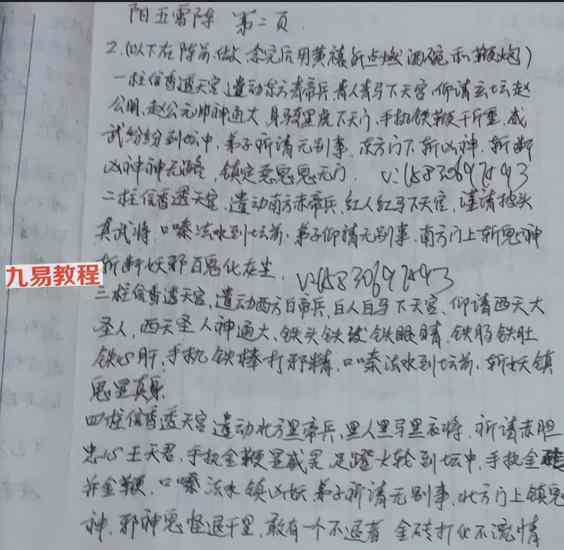 阳五雷阵 第二页
2.(以下在阵前做 念完后用黄裱纸点燃 酒碗和鞭炮)
一柱信香透天宫,遣动东方青帝兵,青人青马下天宫,仰请玄坛赵
公明,赵公元帅神通大,身骑黑虎下天门,手执铁鞭千斤重,威
武纷纷到坛中,弟子祈请无别事,东方门下斩凶神,斩断
凶神神无路,镇定恶鬼鬼无门. V:15830697493
二柱信香透天宫,遣动南方赤帝兵,红人红马下天宫,谨请披头
真武将,口嗪法水到坛前.弟子仰请无别事,南方门上斩鬼神
斩断妖邪百鬼化灰尘. V:15830697493
九易教程
三柱信香透天宫,遣动西方白帝兵,白人白马下天宫.仰请西天大
圣人,西天圣人神通大,铁头铁铁眼睛,铁肠铁肚
铁心肝,手执铁棒打邪精,口嗪法水到坛前,斩妖镇
鬼显真身.
四柱信香透天宫 遣动北方黑帝兵,黑人黑马黑衣将,祈请赤胆
忠心王天君,手执金鞭显威灵,足蹬火轮到坛中,手执金砖
并金鞭,口嗪法水镇凶妖 弟子祈请无别事,北方门上镇鬼
神,邪神鬼怪退千里,敢有一个不退者 金砖打化不流情